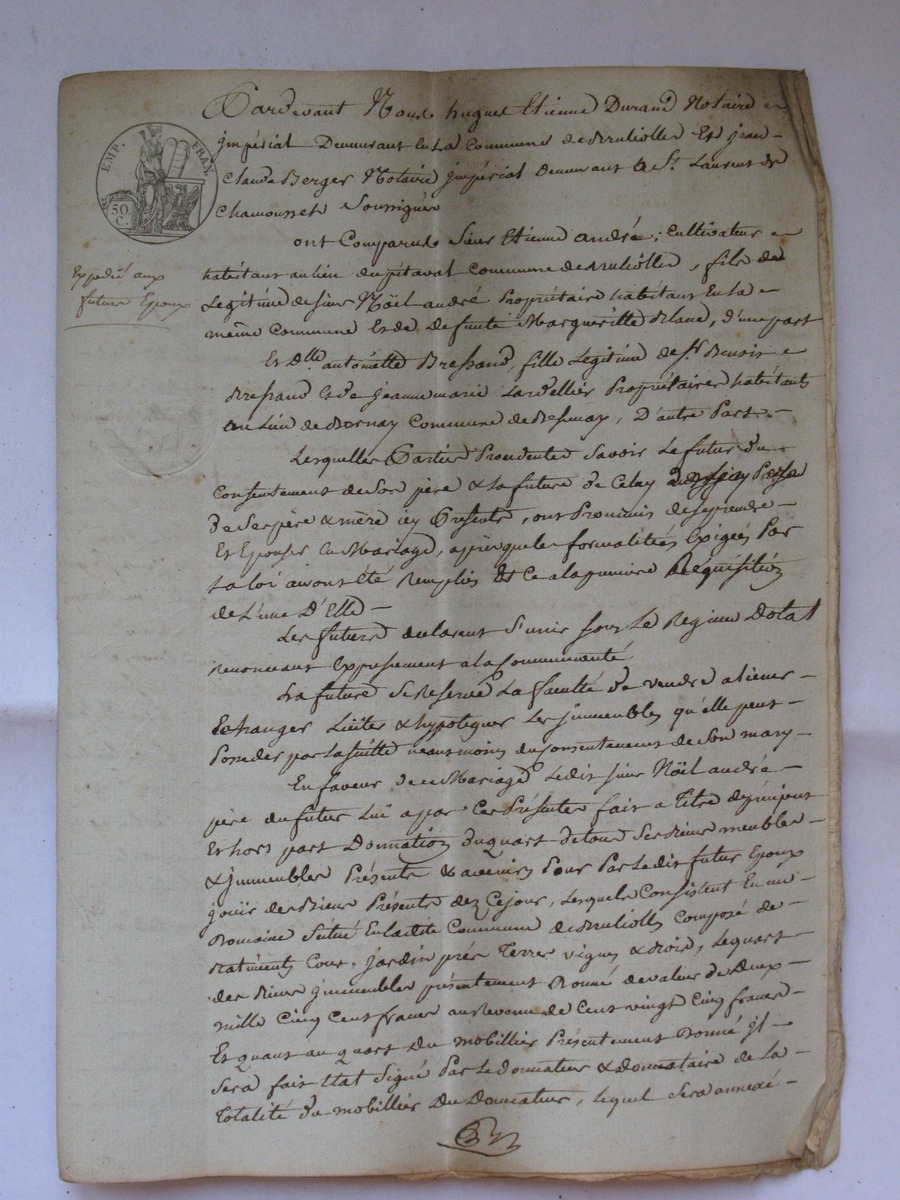 EMP. FRAN.
50 C.
Expedié aux
futurs Epoux
Pardevant Nous hugues Etienne Durand Notaire
impérial Demeurant en La Commune de Brullioles Et jean
Claude Berger Notaire jmpérial demeurant à St. Laurent de
Chamousset Soussignés
ont Comparus Sieur Etienne andré, Cultivateur
habitant au lieu du pitaval Commune de Brulliolles, fils
Legitime de sieur Noël andré Propriétaire habitant En la
même Commune Et de defunte Margueritte Blanc, d'une part
Et Dlle. antoinette Bressand, fille Legitime de Sr. Benoit
Bressand Et de jeanne marie Lardellier Propriétaires habitants
au Lieu de Bornay Commune de Bessenay, D'autre Part
Lesquelles Parties Procedentes Savoir Le futur du
Consentement de Son père & La future de Celuy
de Ses père & mère icy Présents, ont Promis de se prendre
Et Epouser En Mariage, après que les formalités Exigées Par
La loi auront été Remplies Et Ce a la première Requisition
de L'une D'Elle
Les futurs declarent S'unir Sous Le Regime Dotal
renonceant Expressement a la Communauté
La future Se Reserve La faculté de vendre aliener
Echanger Liciter & hypotequer Les jmmeubles qu'elle peut
Posseder par La Suitte neanmoins du Consentement de Son mary
En faveur de ce Mariage Le dit sieur Noël andré
père du futur Lui a par Ces Présentes fait a Titre de préciput
Et hors part Donnation du quart de tous Ses Biens meubles
& jmmeubles Présents & avenirs Pour Par Le dit futur Epoux
jouir des Biens Présents dez Ce jour, Lesquels Consistent En un
Domaine Situé En la dite Commune de Brulliolles Composé de
Batiments Cour, jardin prés Terres vignes & bois, Le quart
des Biens jmmeubles présentement Donné de valeur de Deux
mille Cinq Cent francs au Revenu de Cent vingt Cinq francs
Et quant au quart Du mobillier Présentement Donné jl
Sera fait Etat Signé Par Le donnateur & donnataire de La
Totalité du mobillier Du Donnateur, lequel Sera annexé